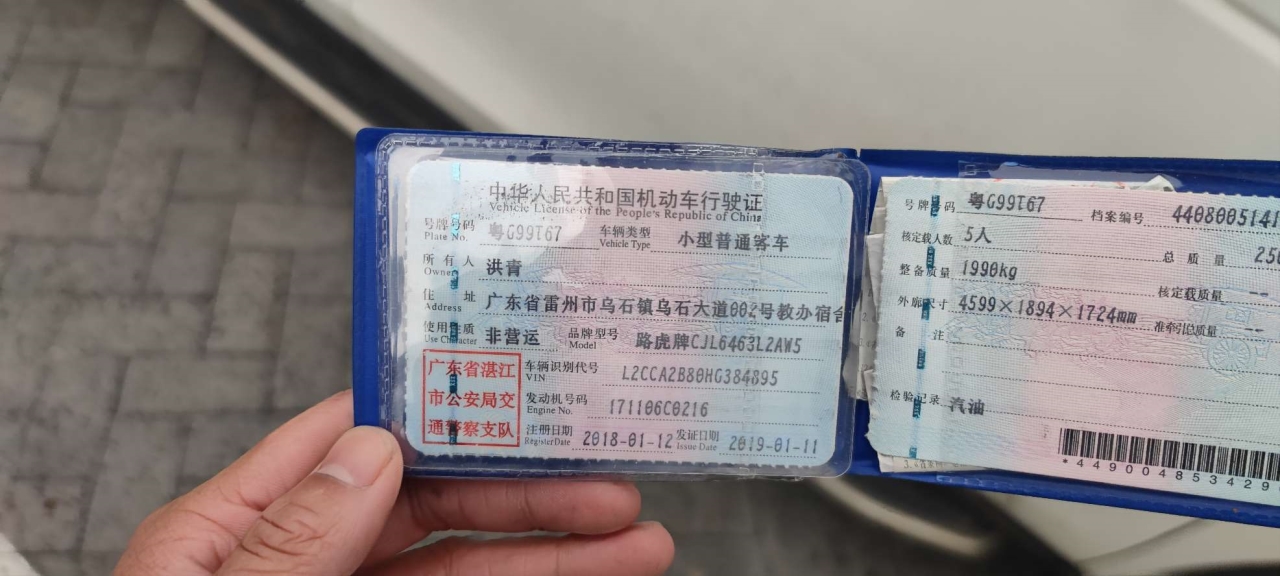 中华人民共和国机动车行驶证
Vehicle License of the People's Republic of China
号牌号码 粤G99T67 车辆类型 小型普通客车
Plate No. Vehicle Type
所有人 洪青
Owner
住址 广东省雷州市乌石镇乌石大道002号教办宿舍
Address
使用性质 非营运 品牌型号 路虎牌CJL6463L2AW5
Use Character Model
广东省湛江
市公安局交
通警察支队
车辆识别代号 L2CCA2B80HG384895
VIN
发动机号码 171106C0216
Engine No.
注册日期 2018-01-12 发证日期 2019-01-11
Register Date Issue Date
号牌号码 粤G99T67 档案编号 4408005141
核定载人数 5人 总质量 250
整备质量 1990kg 核定载质量 --
外廓尺寸 4599×1894×1724mm 准牵引总质量 --
备注
检验记录 汽油
*449004853429